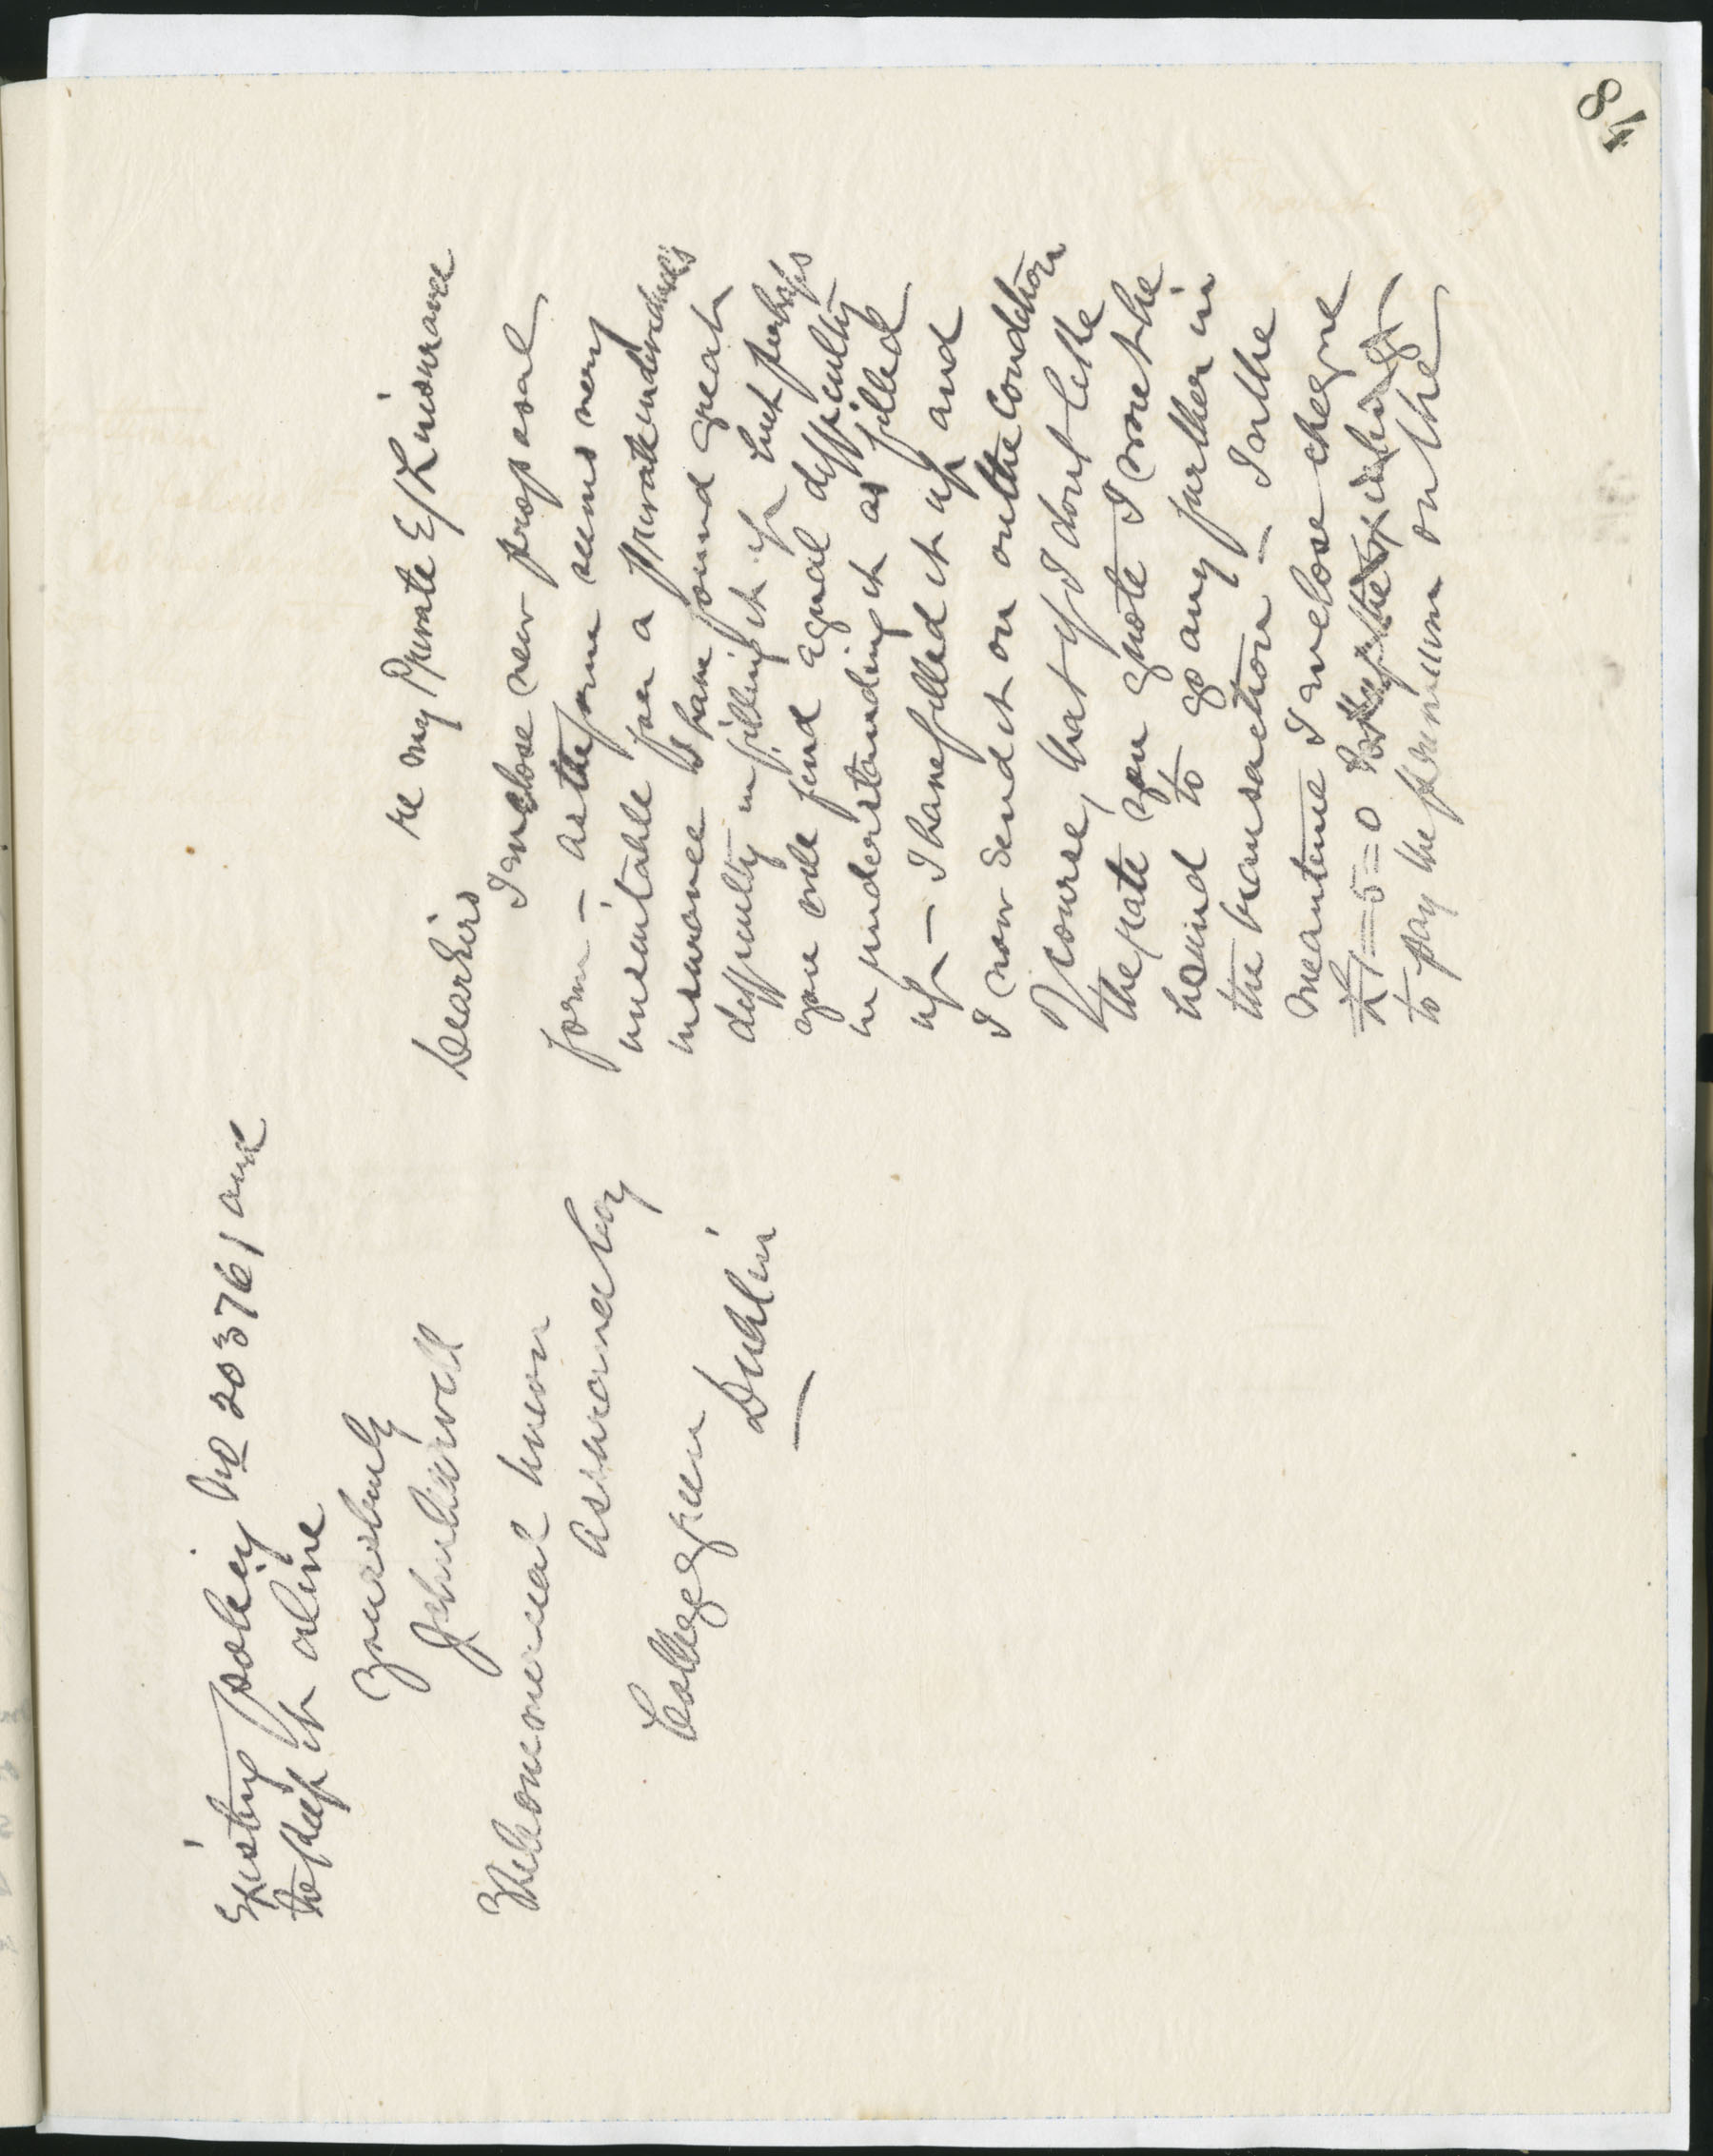 48
re my Private E/L insurance
Dear Sirs
I inclose new proposal
form — as the form seems very
unsuitable for a private individual's
insurance I have found great
difficulty in filling it up but perhaps
you will find equal difficulty
in understanding it as filled
up — I have filled it up and
I now send it on on the condition
of course, that if I dont like
the rate you quote I wont be
bound to go any further in
the transaction — In the
meantime I inclose cheque
£1=5=0
to pay the premium on the
existing policy No 203761 and
to keep it alive
Yours truly
The Commercial Union
Assurance Coy
College green
Dublin